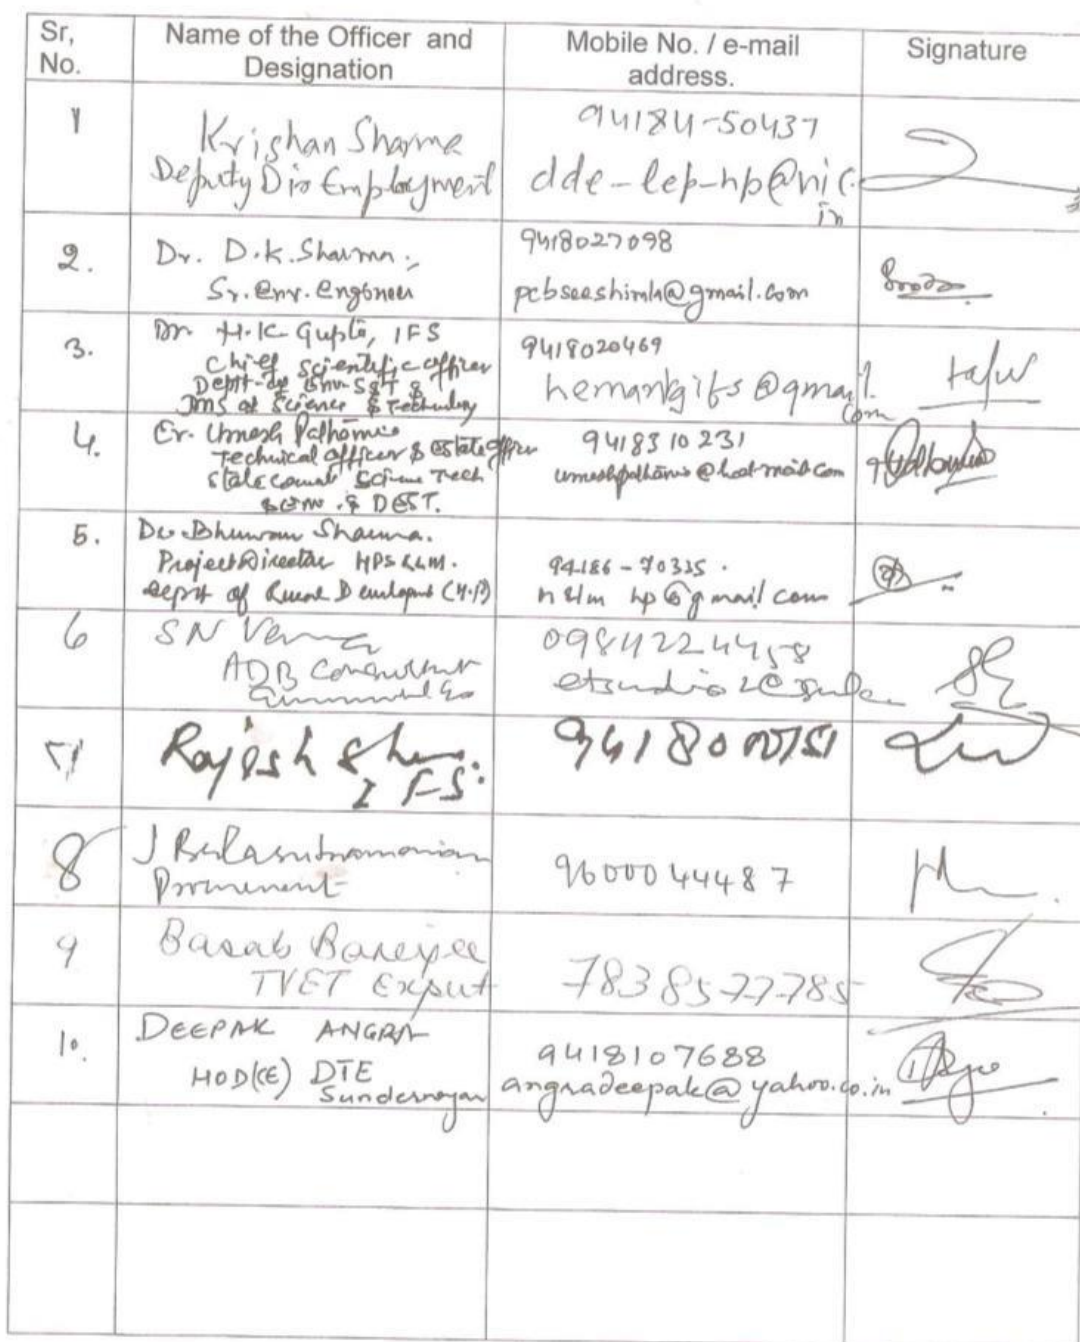 Sr, No.
Name of the Officer and Designation
Mobile No. / e-mail address.
Signature
1
Krishan Sharma
Deputy Dir Employment
94184-50437
dde-lep-hp@nic.
in
2.
Dr. D.K. Sharma
Sr. Env. Engineer
9418027098
pcbseeshimla@gmail.com
3.
Dr. H.K. Gupta, IFS
Chief Scientific Officer
Deptt. of Env. S&T &
of Science & Technology
9418020469
hemankgifs@gmail.
com
4.
Er. Umesh Pathania
Technical Officer & Estate Officer
State Council Science Tech
& DEST.
9418310231
umeshpathania@hotmail.com
5.
Dr. Bhuwan Sharma.
Project Director HPSRLM.
Deptt of Rural Developmt (H.P)
94186-70335.
nrlm hp@gmail com
6
SN Verma
ADB Consultant
7
Rajesh
IFS.
8
J Balasubramanian
9600044487
9
Basab Banerjee
TVET Expert
7838577785
10.
DEEPAK ANGRA
HOD(CE) DTE
Sundernagar
9418107688
angradeepak@yahoo.co.in